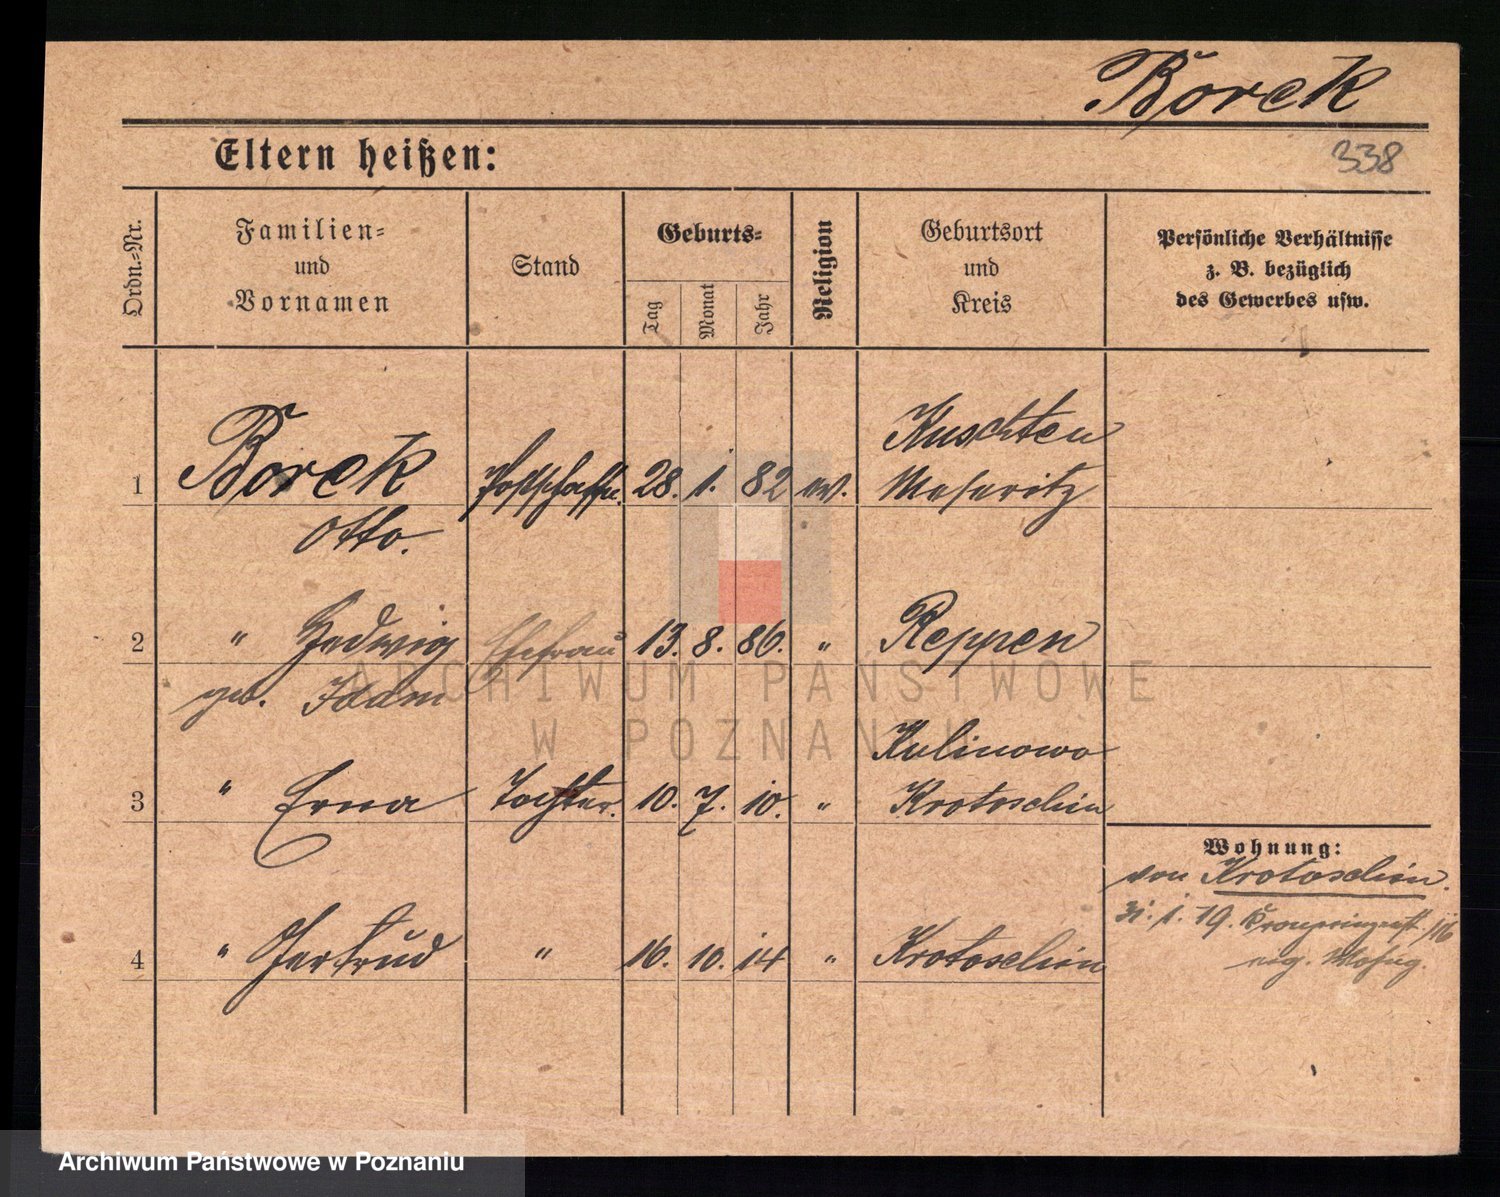 Borck
Eltern heißen:
338
Ordn.=Nr.
Familien=
und
Vornamen
Stand
Geburts=
Tag
Monat
Jahr
Religion
Geburtsort
und
Kreis
Persönliche Verhältnisse
z. B. bezüglich
des Gewerbes usw.
Kuschten
1 Borck 28. 1. 82 ev. Meseritz
Otto.
2 " Hedwig Ehefrau 13. 8. 86. " Reppen
geb.
ARCHIWUM PAŃSTWOWE
W POZNANIU
Kulinowo
3 " Erna Tochter. 10. 7. 10. " Krotoschin
Wohnung:
von Krotoschin.
31. 1. 19.
4 " Gertrud " 16. 10. 14 " Krotoschin
Archiwum Państwowe w Poznaniu